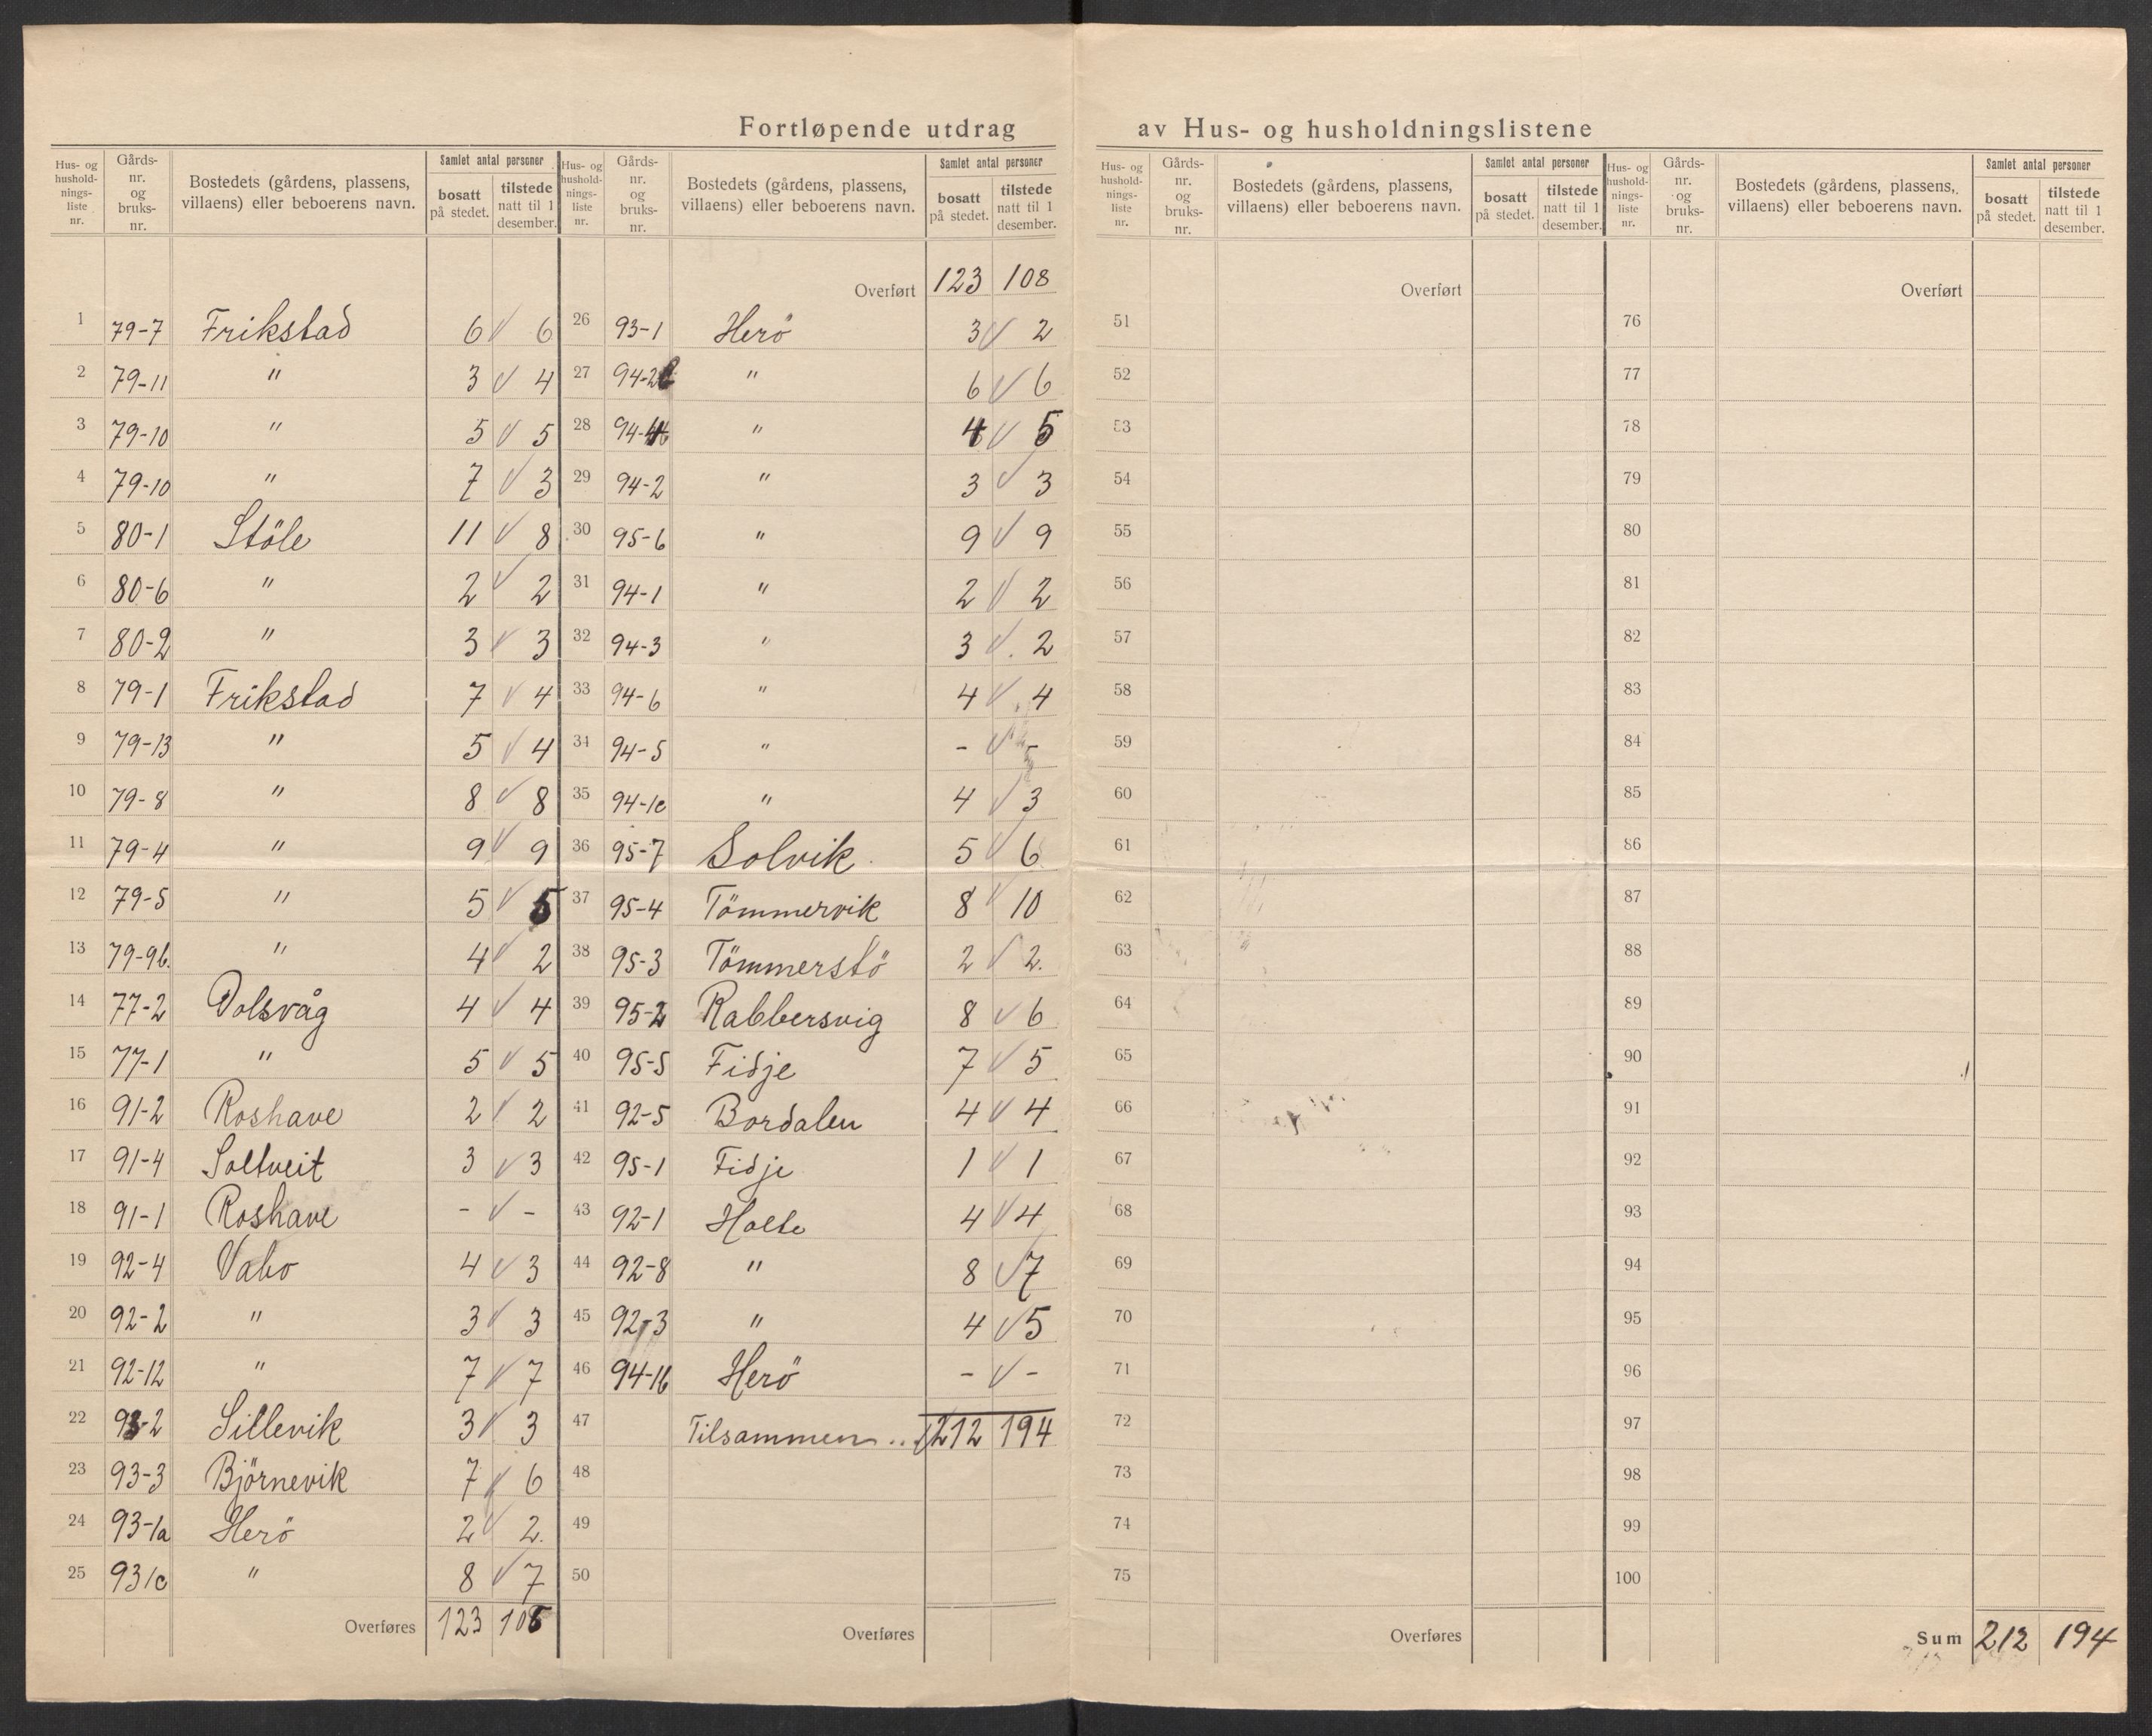 Fortløpende utdrag av Hus- og husholdningslistene
Hus- og husholdnings-liste nr. | Gårds-nr. og bruks-nr. | Bostedets (gårdens, plassens, villaens) eller beboerens navn. | Samlet antal personer | bosatt på stedet. | tilstede natt til 1 desember.
1 79-7 Frikstad 6 √ 6
2 79-11 " 3 √ 4
3 79-10 " 5 √ 5
4 79-10 " 7 √ 3
5 80-1 Stöle 11 √ 8
6 80-6 " 2 √ 2
7 80-2 " 3 √ 3
8 79-1 Frikstad 7 √ 4
9 79-13 " 5 √ 4
10 79-8 " 8 √ 8
11 79-4 " 9 √ 9
12 79-5 " 5 √ 5
13 79-9b. " 4 √ 2
14 77-2 Dolsvåg 4 √ 4
15 77-1 " 5 √ 5
16 91-2 Roshave 2 √ 2
17 91-4 Soltveit 3 √ 3
18 91-1 Roshave - √ -
19 92-4 Vabo 4 √ 3
20 92-2 " 3 √ 3
21 92-12 " 7 √ 7
22 93-2 Sillevik 3 √ 3
23 93-3 Björnevik 7 √ 6
24 93-1a Herö 2 √ 2.
25 93 1c " 8 √ 7
Overføres 123 108
Hus- og husholdnings-liste nr. | Gårds-nr. og bruks-nr. | Bostedets (gårdens, plassens, villaens) eller beboerens navn. | Samlet antal personer | bosatt på stedet. | tilstede natt til 1 desember.
Overført 123 108
26 93-1 Herö 3 √ 2
27 94-2 " 6 √ 6
28 " 4 √ 5
29 94-2 " 3 √ 3
30 95-6 " 9 √ 9
31 94-1 " 2 √ 2
32 94-3 " 3 √ 2
33 94-6 " 4 √ 4
34 94-5 " - √
35 94-1c " 4 √ 3
36 95-7 Solvik 5 √ 6
37 95-4 Tömmervik 8 √ 10
38 95-3 Tömmerstö 2 √ 2.
39 95-2 Rabbersvig 8 √ 6
40 95-5 Fidje 7 √ 5
41 92-5 Bordalen 4 √ 4
42 95-1 Fidje 1 √ 1
43 92-1 Holte 4 √ 4
44 92-8 " 8 √ 7
45 92-3 " 4 √ 5
46 94-1b Herö - √ -
47 Tilsammen .. 212 194
48
49
50
Overføres
Hus- og husholdnings-liste nr. | Gårds-nr. og bruks-nr. | Bostedets (gårdens, plassens, villaens) eller beboerens navn. | Samlet antal personer | bosatt på stedet. | tilstede natt til 1 desember.
Overført
51
52
53
54
55
56
57
58
59
60
61
62
63
64
65
66
67
68
69
70
71
72
73
74
75
Overføres
Hus- og husholdnings-liste nr. | Gårds-nr. og bruks-nr. | Bostedets (gårdens, plassens, villaens) eller beboerens navn. | Samlet antal personer | bosatt på stedet. | tilstede natt til 1 desember.
Overført
76
77
78
79
80
81
82
83
84
85
86
87
88
89
90
91
92
93
94
95
96
97
98
99
100
Sum 212 194